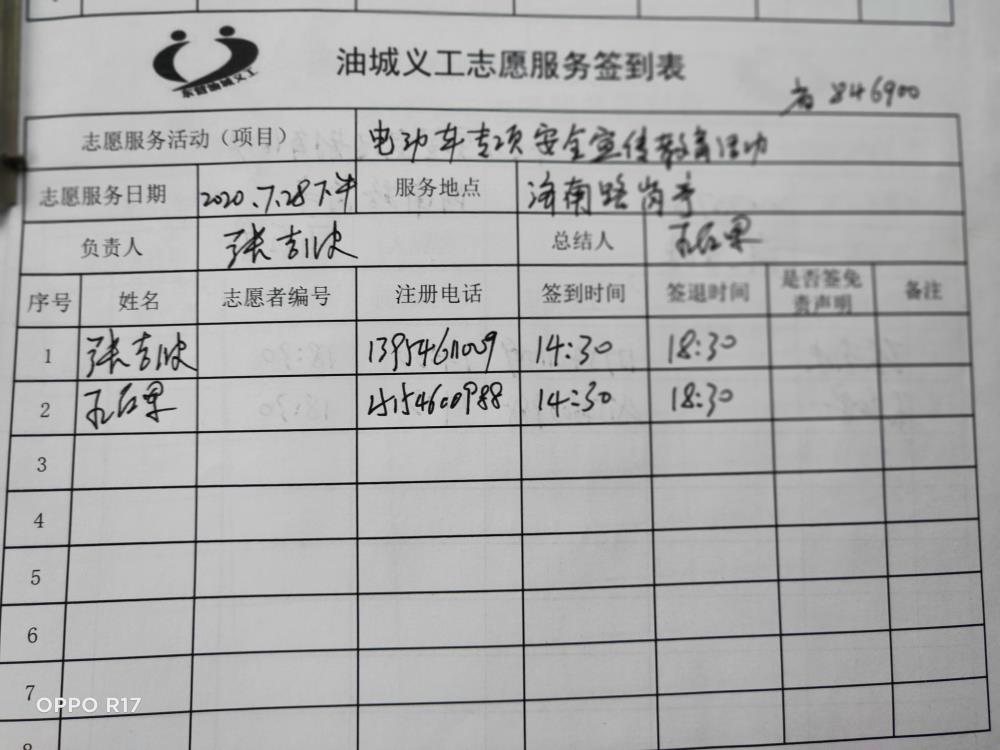 东营油城义工
油城义工志愿服务签到表
846900
志愿服务活动（项目） 电动车专项安全宣传教育活动
志愿服务日期 2020.7.28下午 服务地点 济南路岗亭
负责人 张吉波 总结人
序号 姓名 志愿者编号 注册电话 签到时间 签退时间 是否签免责声明 备注
1 张吉波 14:30 18:30
2 15154600988 14:30 18:30
3
4
5
6
7
8
OPPO R17